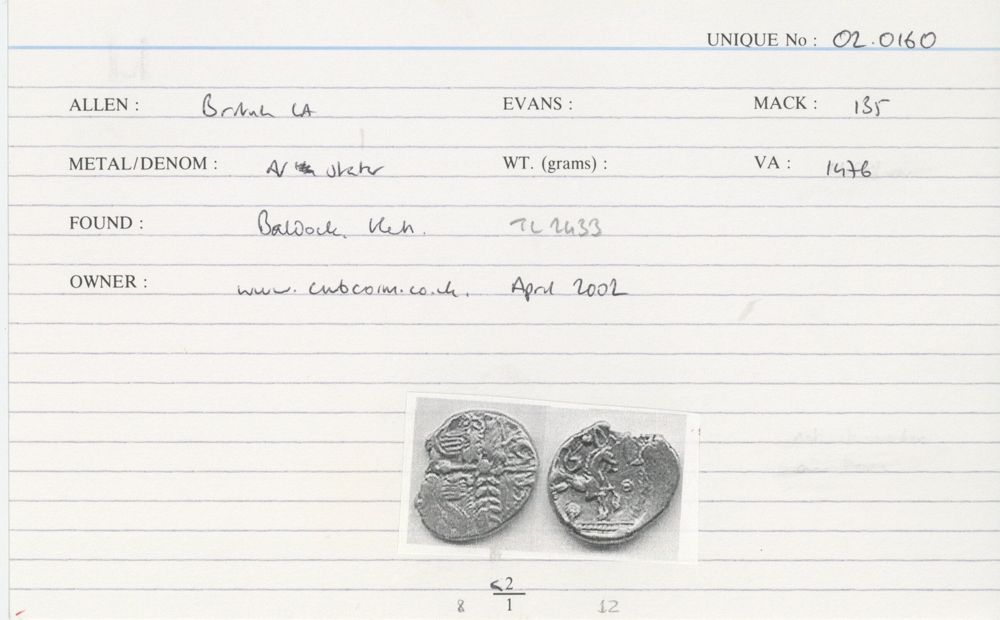 UNIQUE No : 02.0160
ALLEN : British LA EVANS : MACK : 135
METAL/DENOM : AV stater WT. (grams) : VA : 1476
FOUND : Baldock, Herts. TL 2433
OWNER : April 2002
2
8 1 12